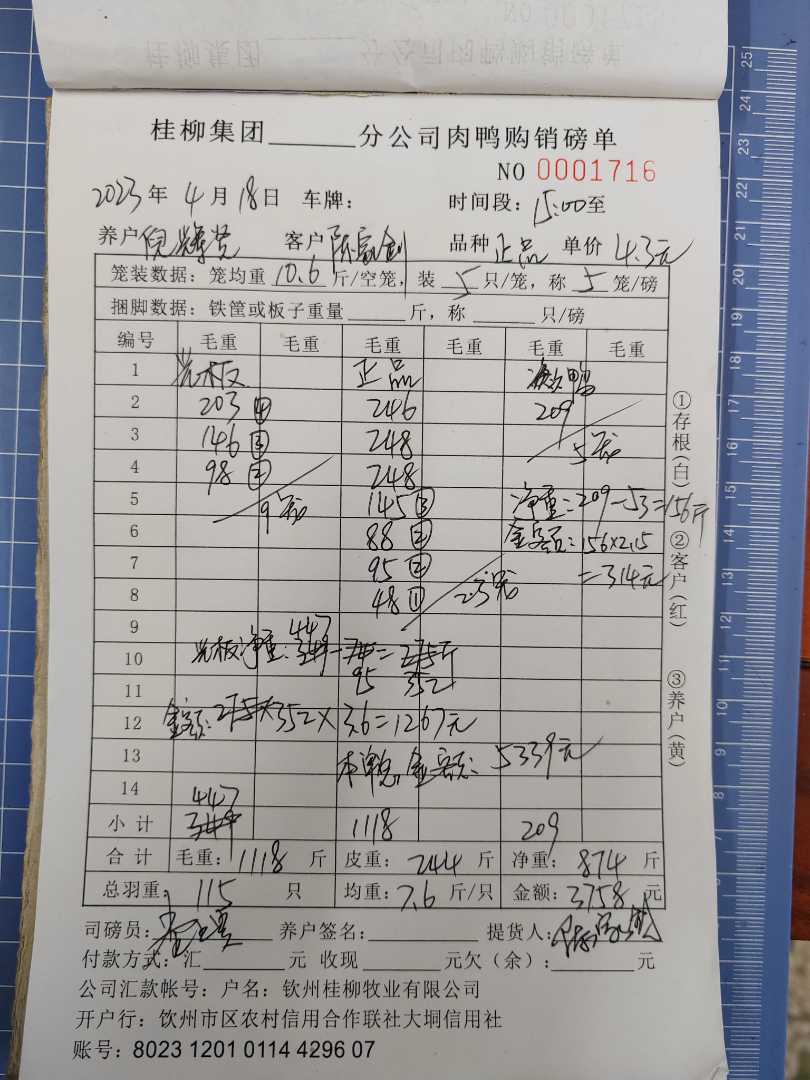 桂柳集团______分公司肉鸭购销磅单
NO 0001716
2023年4月18日 车牌: 时间段:15:00至
养户 倪 客户 陈 品种 正品 单价 4.3元
笼装数据:笼均重10.6斤/空笼,装5只/笼,称5笼/磅
捆脚数据:铁筐或板子重量______斤,称______只/磅
编号 毛重 毛重 毛重 毛重 毛重 毛重
1 光板 正品 次鸭
2 203④ 246 209
3 146③ 248 5笼
4 98② 248
5 9笼 145③ 净重:209-53=156斤
6 88② 金额:156×2.15
7 95② =314元
8 48① 23笼
9 447
10 光板净重: - =
11 95 352
12 金额: 352×3.6=1267元
13 本单总金额:5339元
14 447
小计 1118 209
合计 毛重:1118斤 皮重:244斤 净重:874斤
总羽重:115只 均重:7.6斤/只 金额:3758元
司磅员: 养户签名: 提货人:
付款方式:汇______元 收现______元欠(余):______元
公司汇款帐号:户名:钦州桂柳牧业有限公司
开户行:钦州市区农村信用合作联社大垌信用社
账号:8023 1201 0114 4296 07
①存根(白)②客户(红)③养户(黄)